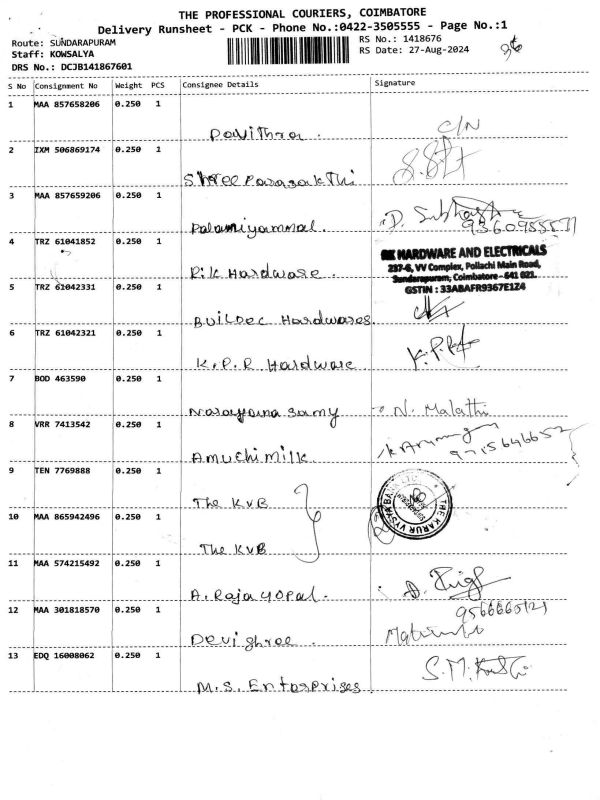 THE PROFESSIONAL COURIERS, COIMBATORE
Delivery Runsheet - PCK - Phone No.:0422-3505555 - Page No.:1
Route: SUNDARAPURAM
Staff: KOWSALYA
DRS No.: DCJB141867601
RS No.: 1418676
RS Date: 27-Aug-2024
S No Consignment No Weight PCS Consignee Details Signature
1 MAA 857658206 0.250 1
Pavithra. C/N
2 IXM 506869174 0.250 1
Shree Parasakthi
3 MAA 857659206 0.250 1
Palaniyammal. D. Subha
4 TRZ 61041852 0.250 1
R.K Hardware.
RK HARDWARE AND ELECTRICALS
237-G, VV Complex, Pollachi Main Road,
Sundarapuram, Coimbatore - 641 021.
GSTIN : 33ABAFR9367E1Z4
5 TRZ 61042331 0.250 1
Buildec Hardwares.
6 TRZ 61042321 0.250 1
K.P.R Hardware K.P.R
7 BOD 463590 0.250 1
Narayana Samy N. Malathi
8 VRR 7413542 0.250 1
Amuthi milk. K Arumugam
9715646652
9 TEN 7769888 0.250 1
The KVB
THE KARUR VYSYA BANK LTD
10 MAA 865942496 0.250 1
The KVB
11 MAA 574215492 0.250 1
A. Rajagopal.
12 MAA 301818570 0.250 1
Devishree.
13 EDQ 16008062 0.250 1
M.S. Enterprises. S.M.